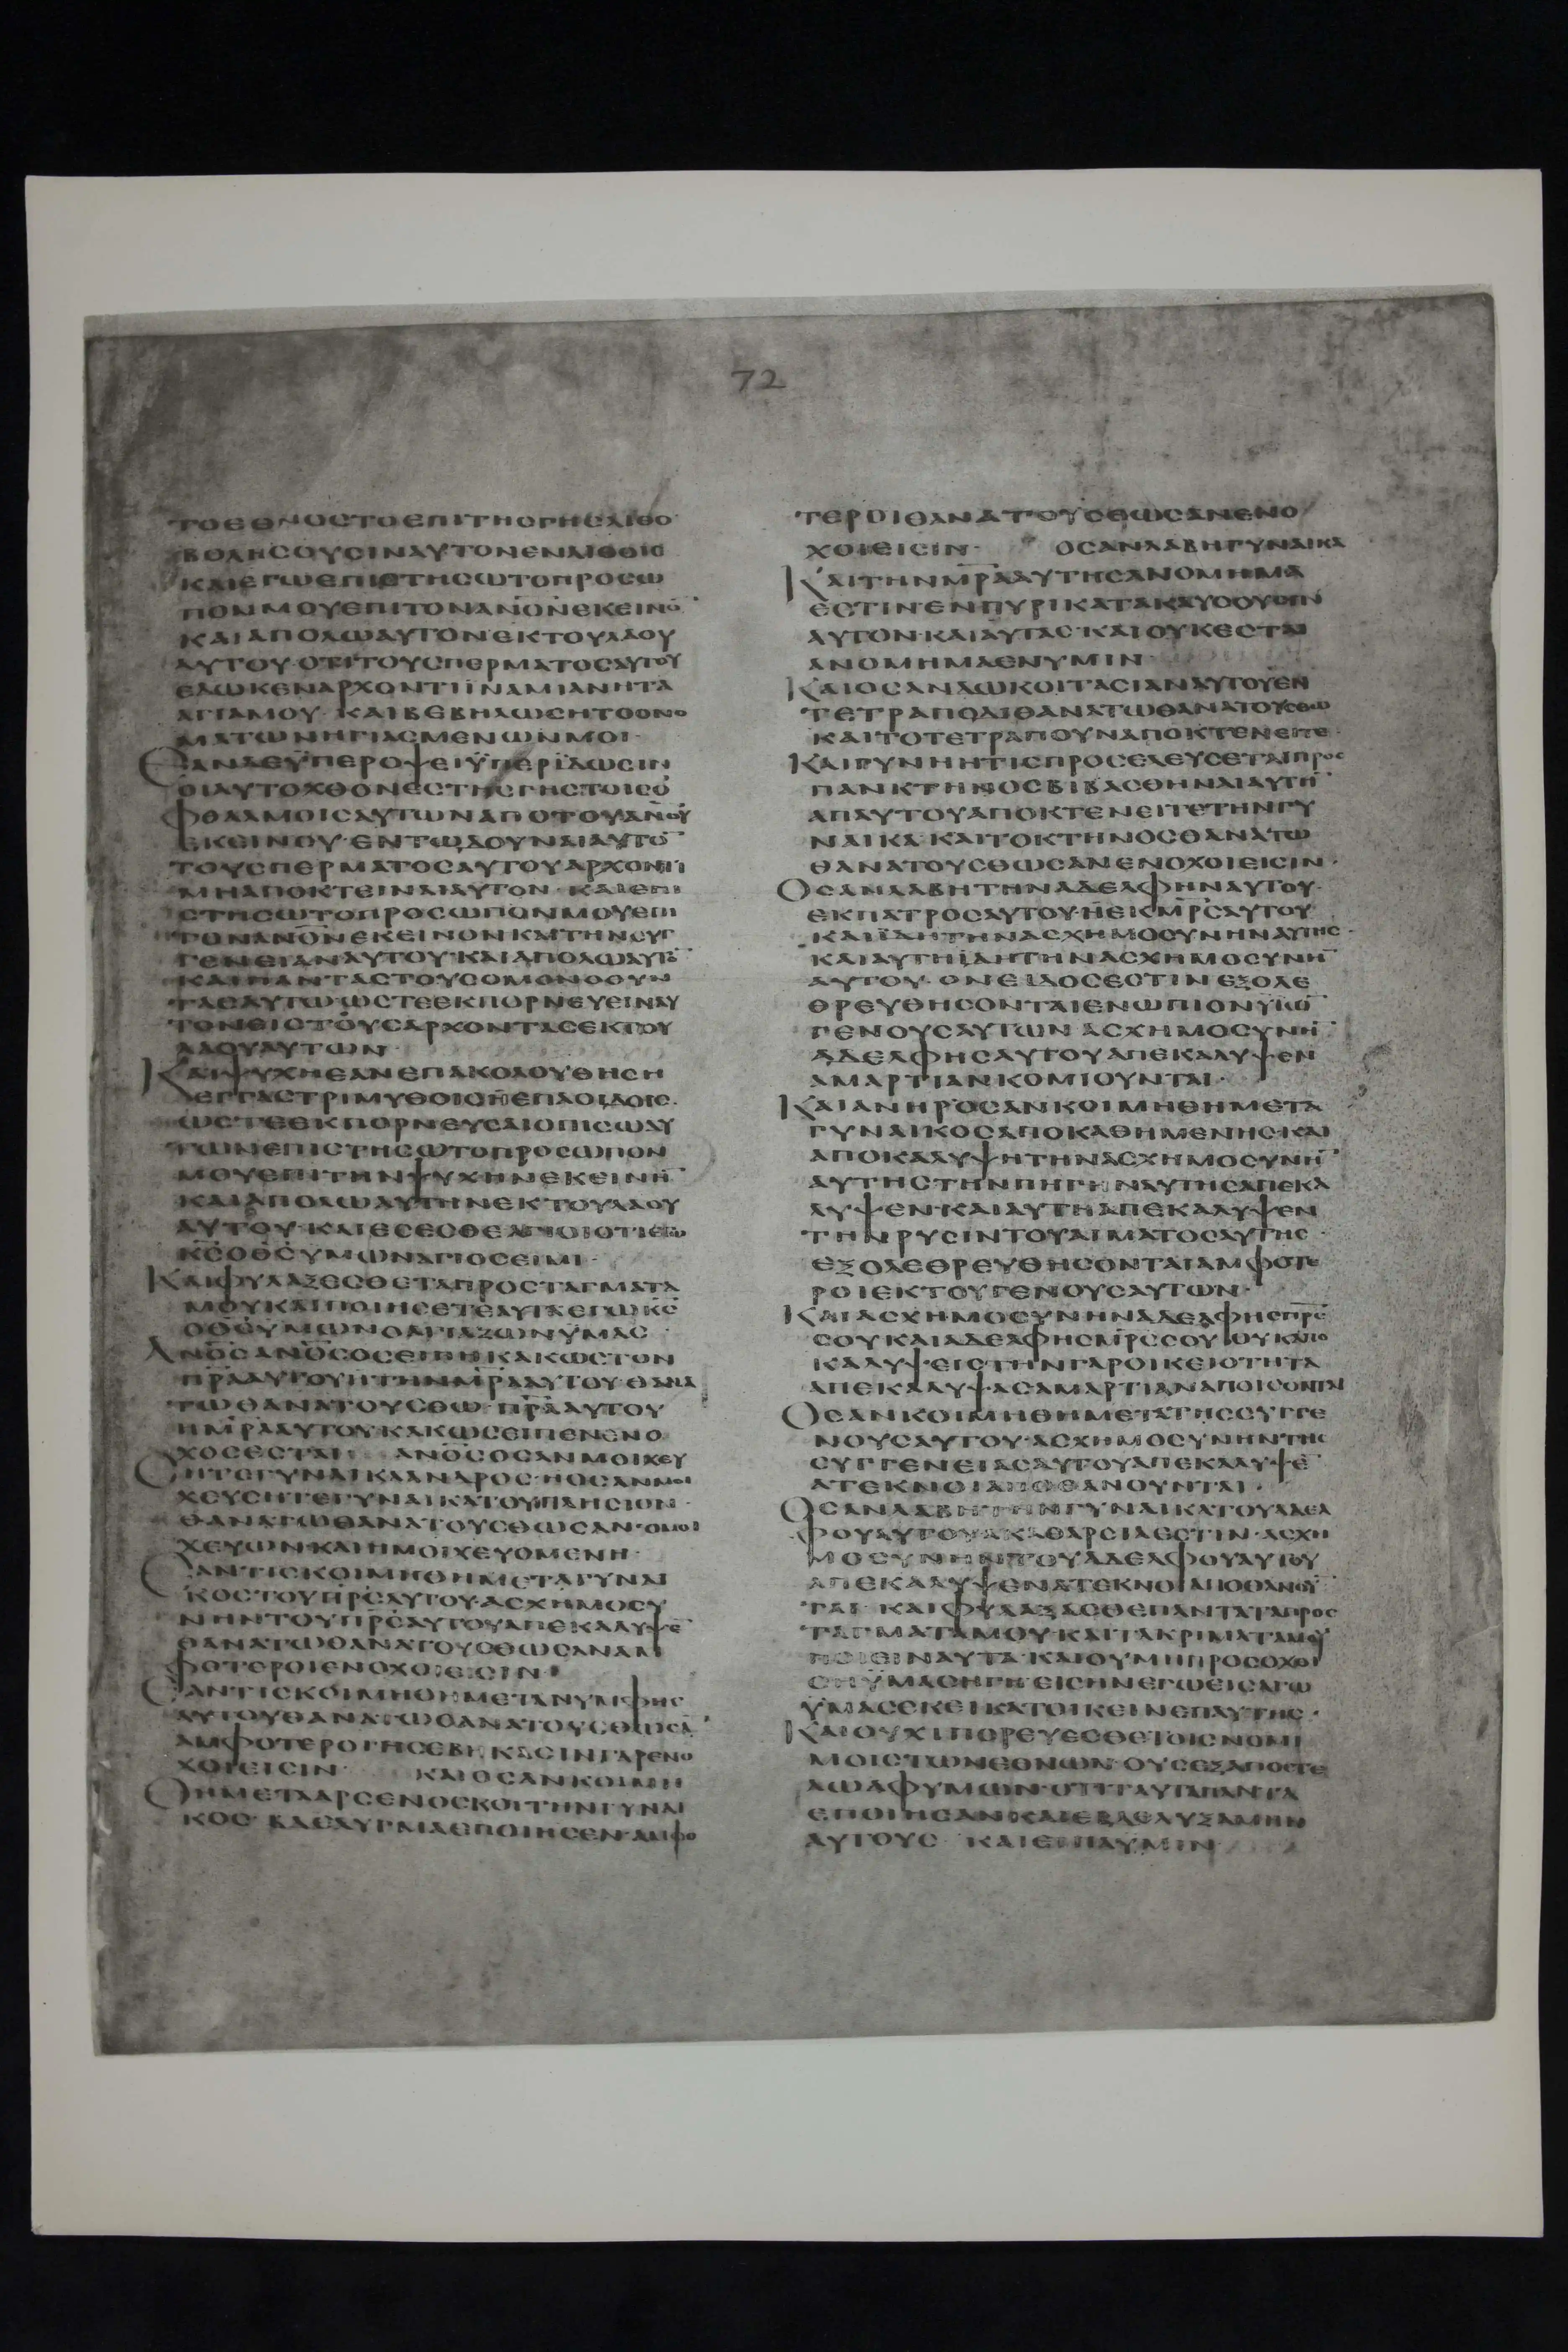 72
ΤΟΕΘΝΟϹΤΟΕΠΙΤΗϹΓΗϹΛΙΘΟ
ΒΟΛΗϹΟΥϹΙΝΑΥΤΟΝΕΝΛΙΘΟΙϹ
ΚΑΙΕΓΩΕΠΙϹΤΗϹΩΤΟΠΡΟϹΩ
ΠΟΝΜΟΥΕΠΙΤΟΝΑΝ̅Ο̅Ν̅ΕΚΕΙΝΟ̅
ΚΑΙΑΠΟΛΩΑΥΤΟΝΕΚΤΟΥΛΑΟΥ
ΑΥΤΟΥ·ΟΤΙΤΟΥϹΠΕΡΜΑΤΟϹΑΥΤΟΥ
ΕΔΩΚΕΝΑΡΧΟΝΤΙΪΝΑΜΙΑΝΗΤΑ
ΑΓΙΑΜΟΥ·ΚΑΙΒΕΒΗΛΩϹΗΤΟΟΝΟ
ΜΑΤΩΝΗΓΙΑϹΜΕΝΩΝΜΟΙ·
ΕΑΝΔΕΫΠΕΡΟΨΕΙΫΠΕΡΪΔΩϹΙΝ
ΟΙΑΥΤΟΧΘΟΝΕϹΤΗϹΓΗϹΤΟΙϹΟ
ΦΘΑΛΜΟΙϹΑΥΤΩΝΑΠΟΤΟΥΑΝ̅Ο̅Υ̅
ΕΚΕΙΝΟΥ·ΕΝΤΩΔΟΥΝΑΙΑΥΤΟ̅
ΤΟΥϹΠΕΡΜΑΤΟϹΑΥΤΟΥΑΡΧΟΝΤΙ
ΜΗΑΠΟΚΤΕΙΝΑΙΑΥΤΟΝ·ΚΑΙΕΠΙ
ϹΤΗϹΩΤΟΠΡΟϹΩΠΟΝΜΟΥΕΠΙ
ΤΟΝΑΝ̅Ο̅Ν̅ΕΚΕΙΝΟΝΚΑΙΤΗΝϹΥΓ
ΓΕΝΕΙΑΝΑΥΤΟΥ·ΚΑΙΑΠΟΛΩΑΥΤΟ̅
ΚΑΙΠΑΝΤΑϹΤΟΥϹΟΜΟΝΟΟΥΝ
ΤΑϹΑΥΤΩΩϹΤΕΕΚΠΟΡΝΕΥΕΙΝΑΥ
ΤΟΝΕΙϹΤΟΥϹΑΡΧΟΝΤΑϹΕΚΤΟΥ
ΛΑΟΥΑΥΤΩΝ
ΚΑΙΨΥΧΗΕΑΝΕΠΑΚΟΛΟΥΘΗϹΗ
ΕΓΓΑϹΤΡΙΜΥΘΟΙϹΗΕΠΑΟΙΔΟΙϹ·
ΩϹΤΕΕΚΠΟΡΝΕΥϹΑΙΟΠΙϹΩΑΥ
ΤΩΝΕΠΙϹΤΗϹΩΤΟΠΡΟϹΩΠΟΝ
ΜΟΥΕΠΙΤΗΝΨΥΧΗΝΕΚΕΙΝΗ̅
ΚΑΙΑΠΟΛΩΑΥΤΗΝΕΚΤΟΥΛΑΟΥ
ΑΥΤΟΥ·ΚΑΙΕϹΕϹΘΕΑΓΙΟΙΟΤΙΕΓΩ
Κ̅Ϲ̅Ο̅Θ̅Ϲ̅ΥΜΩΝΑΓΙΟϹΕΙΜΙ·
ΚΑΙΦΥΛΑΞΕϹΘΕΤΑΠΡΟϹΤΑΓΜΑΤΑ
ΜΟΥΚΑΙΠΟΙΗϹΕΤΕΑΥΤΑΕΓΩΚ̅Ϲ̅
ΟΘ̅Ϲ̅ΥΜΩΝΟΑΓΙΑΖΩΝΥΜΑϹ
ΑΝ̅Ο̅Ϲ̅ΑΝ̅Ο̅Ϲ̅ΟϹΕΙΠΗΚΑΚΩϹΤΟΝ
Π̅Ρ̅Α̅ΑΥΤΟΥΗΤΗΝΜ̅Ρ̅Α̅ΑΥΤΟΥ·ΘΑΝΑ
ΤΩΘΑΝΑΤΟΥϹΘΩ·Π̅Ρ̅Α̅ΑΥΤΟΥ
ΗΜ̅Ρ̅Α̅ΑΥΤΟΥ·ΚΑΚΩϹΕΙΠΕΝΕΝΟ
ΧΟϹΕϹΤΑΙ ΑΝ̅Ο̅Ϲ̅ΟϹΑΝΜΟΙΧΕΥ
ϹΗΤΕΓΥΝΑΙΚΑΑΝΔΡΟϹ·ΗΟϹΑΝΜΟΙ
ΧΕΥϹΗΤΕΓΥΝΑΙΚΑΤΟΥΠΛΗϹΙΟΝ·
ΘΑΝΑΤΩΘΑΝΑΤΟΥϹΘΩϹΑΝ·ΟΜΟΙ
ΧΕΥΩΝ·ΚΑΙΗΜΟΙΧΕΥΟΜΕΝΗ·
ΕΑΝΤΙϹΚΟΙΜΗΘΗΜΕΤΑΓΥΝΑΙ
ΚΟϹΤΟΥΠ̅Ρ̅Ϲ̅ΑΥΤΟΥ·ΑϹΧΗΜΟϹΥ
ΝΗΝΤΟΥΠ̅Ρ̅Ϲ̅ΑΥΤΟΥΑΠΕΚΑΛΥΨΕ̅
ΘΑΝΑΤΩΘΑΝΑΤΟΥϹΘΩϹΑΝΑΜ
ΦΟΤΕΡΟΙΕΝΟΧΟΙΕΙϹΙΝ·
ΕΑΝΤΙϹΚΟΙΜΗΘΗΜΕΤΑΝΥΜΦΗϹ
ΑΥΤΟΥΘΑΝΑΤΩΘΑΝΑΤΟΥϹΘΩϹΑ̅
ΑΜΦΟΤΕΡΟΙΗϹΕΒΗΚΑϹΙΝΓΑΡΕΝΟ
ΧΟΙΕΙϹΙΝ ΚΑΙΟϹΑΝΚΟΙΜΗ
ΘΗΜΕΤΑΑΡϹΕΝΟϹΚΟΙΤΗΝΓΥΝΑΙ
ΚΟϹ·ΒΔΕΛΥΓΜΑΕΠΟΙΗϹΕΝ·ΑΜΦΟ
ΤΕΡΟΙΘΑΝΑΤΟΥϹΘΩϹΑΝΕΝΟ
ΧΟΙΕΙϹΙΝ· ΟϹΑΝΛΑΒΗΓΥΝΑΙΚΑ
ΚΑΙΤΗΝΜ̅Ρ̅Α̅ΑΥΤΗϹΑΝΟΜΗΜΑ
ΕϹΤΙΝ·ΕΝΠΥΡΙΚΑΤΑΚΑΥϹΟΥϹΙΝ
ΑΥΤΟΝ·ΚΑΙΑΥΤΑϹ·ΚΑΙΟΥΚΕϹΤΑΙ
ΑΝΟΜΗΜΑΕΝΥΜΙΝ
ΚΑΙΟϹΑΝΔΩΚΟΙΤΑϹΙΑΝΑΥΤΟΥΕΝ
ΤΕΤΡΑΠΟΔΙΘΑΝΑΤΩΘΑΝΑΤΟΥϹΘΩ
ΚΑΙΤΟΤΕΤΡΑΠΟΥΝΑΠΟΚΤΕΝΕΙΤΕ·
ΚΑΙΓΥΝΗΗΤΙϹΠΡΟϹΕΛΕΥϹΕΤΑΙΠΡΟϹ
ΠΑΝΚΤΗΝΟϹΒΙΒΑϹΘΗΝΑΙΑΥΤΗ̅
ΑΠΑΥΤΟΥΑΠΟΚΤΕΝΕΙΤΕΤΗΝΓΥ
ΝΑΙΚΑ·ΚΑΙΤΟΚΤΗΝΟϹΘΑΝΑΤΩ
ΘΑΝΑΤΟΥϹΘΩϹΑΝΕΝΟΧΟΙΕΙϹΙΝ·
ΟϹΑΝΛΑΒΗΤΗΝΑΔΕΛΦΗΝΑΥΤΟΥ·
ΕΚΠΑΤΡΟϹΑΥΤΟΥ·ΗΕΚΜ̅Ρ̅Ϲ̅ΑΥΤΟΥ
ΚΑΙΪΔΗΤΗΝΑϹΧΗΜΟϹΥΝΗΝΑΥΤΗϹ·
ΚΑΙΑΥΤΗΪΔΗΤΗΝΑϹΧΗΜΟϹΥΝΗ̅
ΑΥΤΟΥ·ΟΝΕΙΔΟϹΕϹΤΙΝΕΞΟΛΕ
ΘΡΕΥΘΗϹΟΝΤΑΙΕΝΩΠΙΟΝΥΙΩ̅
ΓΕΝΟΥϹΑΥΤΩΝ ΑϹΧΗΜΟϹΥΝΗ̅
ΑΔΕΛΦΗϹΑΥΤΟΥΑΠΕΚΑΛΥΨΕΝ
ΑΜΑΡΤΙΑΝΚΟΜΙΟΥΝΤΑΙ·
ΚΑΙΑΝΗΡΟϹΑΝΚΟΙΜΗΘΗΜΕΤΑ
ΓΥΝΑΙΚΟϹΑΠΟΚΑΘΗΜΕΝΗϹ·ΚΑΙ
ΑΠΟΚΑΛΥΨΗΤΗΝΑϹΧΗΜΟϹΥΝΗ̅
ΑΥΤΗϹΤΗΝΠΗΓΗΝΑΥΤΗϹΑΠΕΚΑ
ΛΥΨΕΝ·ΚΑΙΑΥΤΗΑΠΕΚΑΛΥΨΕΝ
ΤΗΝΡΥϹΙΝΤΟΥΑΙΜΑΤΟϹΑΥΤΗϹ·
ΕΞΟΛΕΘΡΕΥΘΗϹΟΝΤΑΙΑΜΦΟΤΕ
ΡΟΙΕΚΤΟΥΓΕΝΟΥϹΑΥΤΩΝ·
ΚΑΙΑϹΧΗΜΟϹΥΝΗΝΑΔΕΛΦΗϹΠ̅Ρ̅Ϲ̅
ϹΟΥΚΑΙΑΔΕΛΦΗϹΜ̅Ρ̅Ϲ̅ϹΟΥΟΥΚΑΠΟ
ΚΑΛΥΨΕΙϹΤΗΝΓΑΡΟΙΚΕΙΟΤΗΤΑ
ΑΠΕΚΑΛΥΨΑϹΑΜΑΡΤΙΑΝΑΠΟΙϹΟΝΤΑΙ
ΟϹΑΝΚΟΙΜΗΘΗΜΕΤΑΤΗϹϹΥΓΓΕ
ΝΟΥϹΑΥΤΟΥ·ΑϹΧΗΜΟϹΥΝΗΝΤΗϹ
ϹΥΓΓΕΝΕΙΑϹΑΥΤΟΥΑΠΕΚΑΛΥΨΕ̅
ΑΤΕΚΝΟΙΑΠΟΘΑΝΟΥΝΤΑΙ·
ΟϹΑΝΛΑΒΗΤΗΝΓΥΝΑΙΚΑΤΟΥΑΔΕΛ
ΦΟΥΑΥΤΟΥΑΚΑΘΑΡϹΙΑΕϹΤΙΝ·ΑϹΧΗ
ΜΟϹΥΝΗΝΤΟΥΑΔΕΛΦΟΥΑΥΤΟΥ
ΑΠΕΚΑΛΥΨΕΝΑΤΕΚΝΟΙΑΠΟΘΑΝΟΥ̅
ΤΑΙ ΚΑΙΦΥΛΑΞΑϹΘΕΠΑΝΤΑΤΑΠΡΟϹ
ΤΑΓΜΑΤΑΜΟΥ·ΚΑΙΤΑΚΡΙΜΑΤΑΜΟΥ
ΠΟΙΕΙΝΑΥΤΑ·ΚΑΙΟΥΜΗΠΡΟϹΟΧΘΙ
ϹΗΫΜΑϹΗΓΗΕΙϹΗΝΕΓΩΕΙϹΑΓΩ
ΫΜΑϹΕΚΕΙΚΑΤΟΙΚΕΙΝΕΠΑΥΤΗϹ·
ΚΑΙΟΥΧΙΠΟΡΕΥΕϹΘΕΤΟΙϹΝΟΜΙ
ΜΟΙϹΤΩΝΕΘΝΩΝ·ΟΥϹΕΞΑΠΟϹΤΕ
ΛΩΑΦΥΜΩΝ·ΟΤΙΤΑΥΤΑΠΑΝΤΑ
ΕΠΟΙΗϹΑΝ·ΚΑΙΕΒΔΕΛΥΞΑΜΗΝ
ΑΥΤΟΥϹ ΚΑΙΕΙΠΑΥΜΙΝ